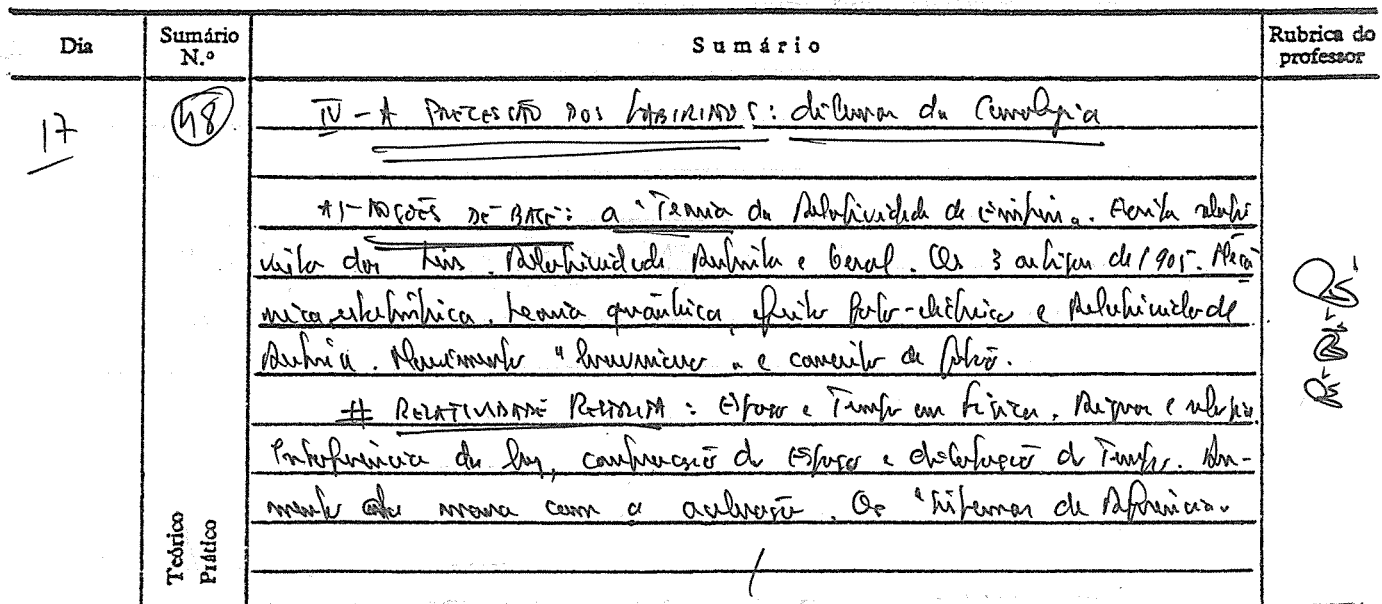 Dia
Sumário N.º
Sumário
Rubrica do professor
17
48
IV - A PRECESSÃO DOS LABIRINTOS: dilemas da Cosmologia
A) - NOÇÕES DE BASE: a "Teoria da Relatividade de Einstein".
Relatividade Restrita e Geral. Os 3 artigos de 1905. Mecâ
nica estatística, teoria quântica, efeito foto-eléctrico e Relatividade
Restrita. Movimento "browniano" e conceito de fotão.
# RELATIVIDADE RESTRITA: Espaço e Tempo em Física. Réguas e relógios
Interferência da luz, contracção do espaço e dilatação do Tempo. Au-
mento da massa com a aceleração. Os "Sistemas de Referência".
Teórico
Prático